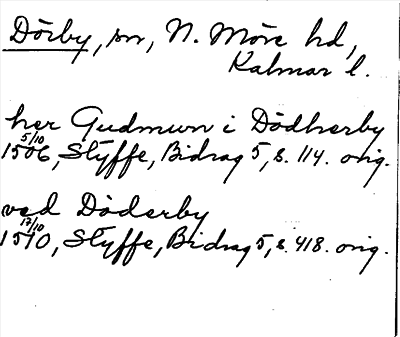 Dörby, sn, N. Möre hd,
Kalmar l.
her Gudmun i Dödherby
5/10
1506, Styffe, Bidrag 5, s. 114. orig.
ved Döderby
17/10
1510, Styffe, Bidrag 5, s. 418. orig.